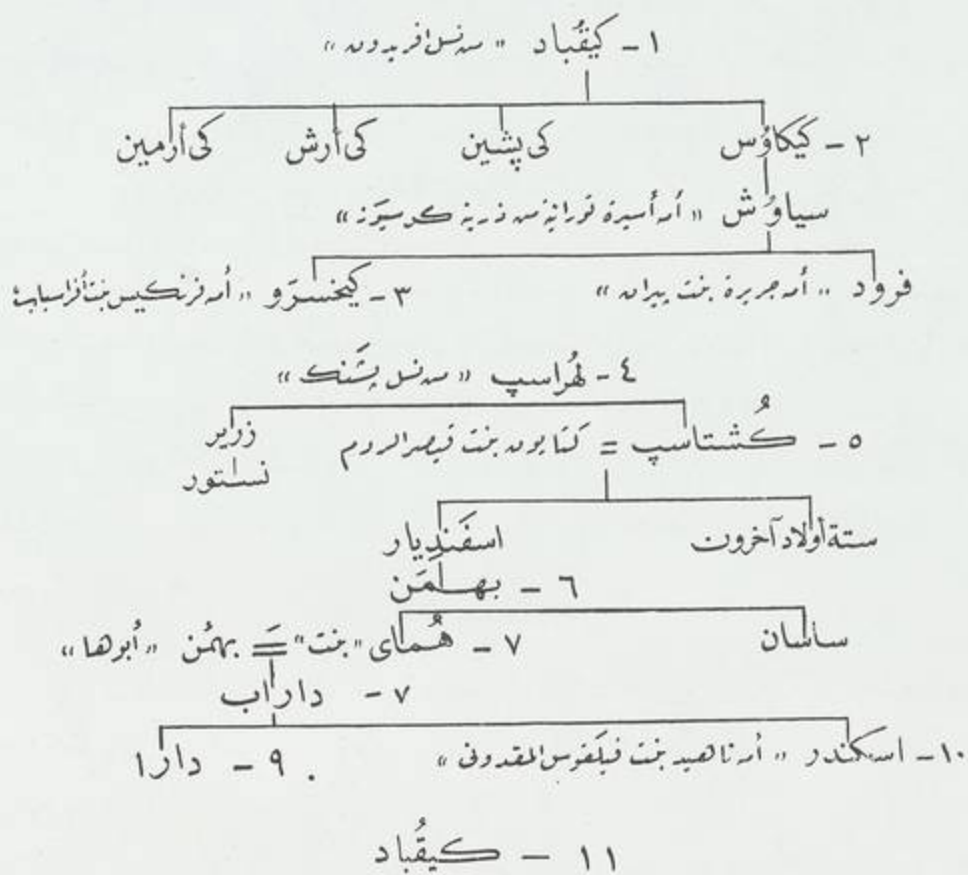 ١ - كيقُباد « من نسل افريدون »
٢ - كيكاوُس كى پشين كى أرش كى أرمين
سياوُش « أمه أسيرة تورانية من ذرية كرسيوز »
فرود « أمه جريرة بنت پيران » ٣ - كيخسرَو « أمه فرنكيس بنت أفراسياب »
٤ - لهُراسپ « من نسل پشَنك »
٥ - كُشتاسپ = كتايون بنت قيصر الروم زرير
نستور
ستة أولاد آخرون اسفَنديار
٦ - بهـمَن
ساسان ٧ - هُماى « بنت » = بهمَن « أبوها »
٧ - داراب
١٠ - اسكندر « أمه ناهيد بنت فيلقوس المقدونى » ٩ - دارا
١١ - كيقُباد